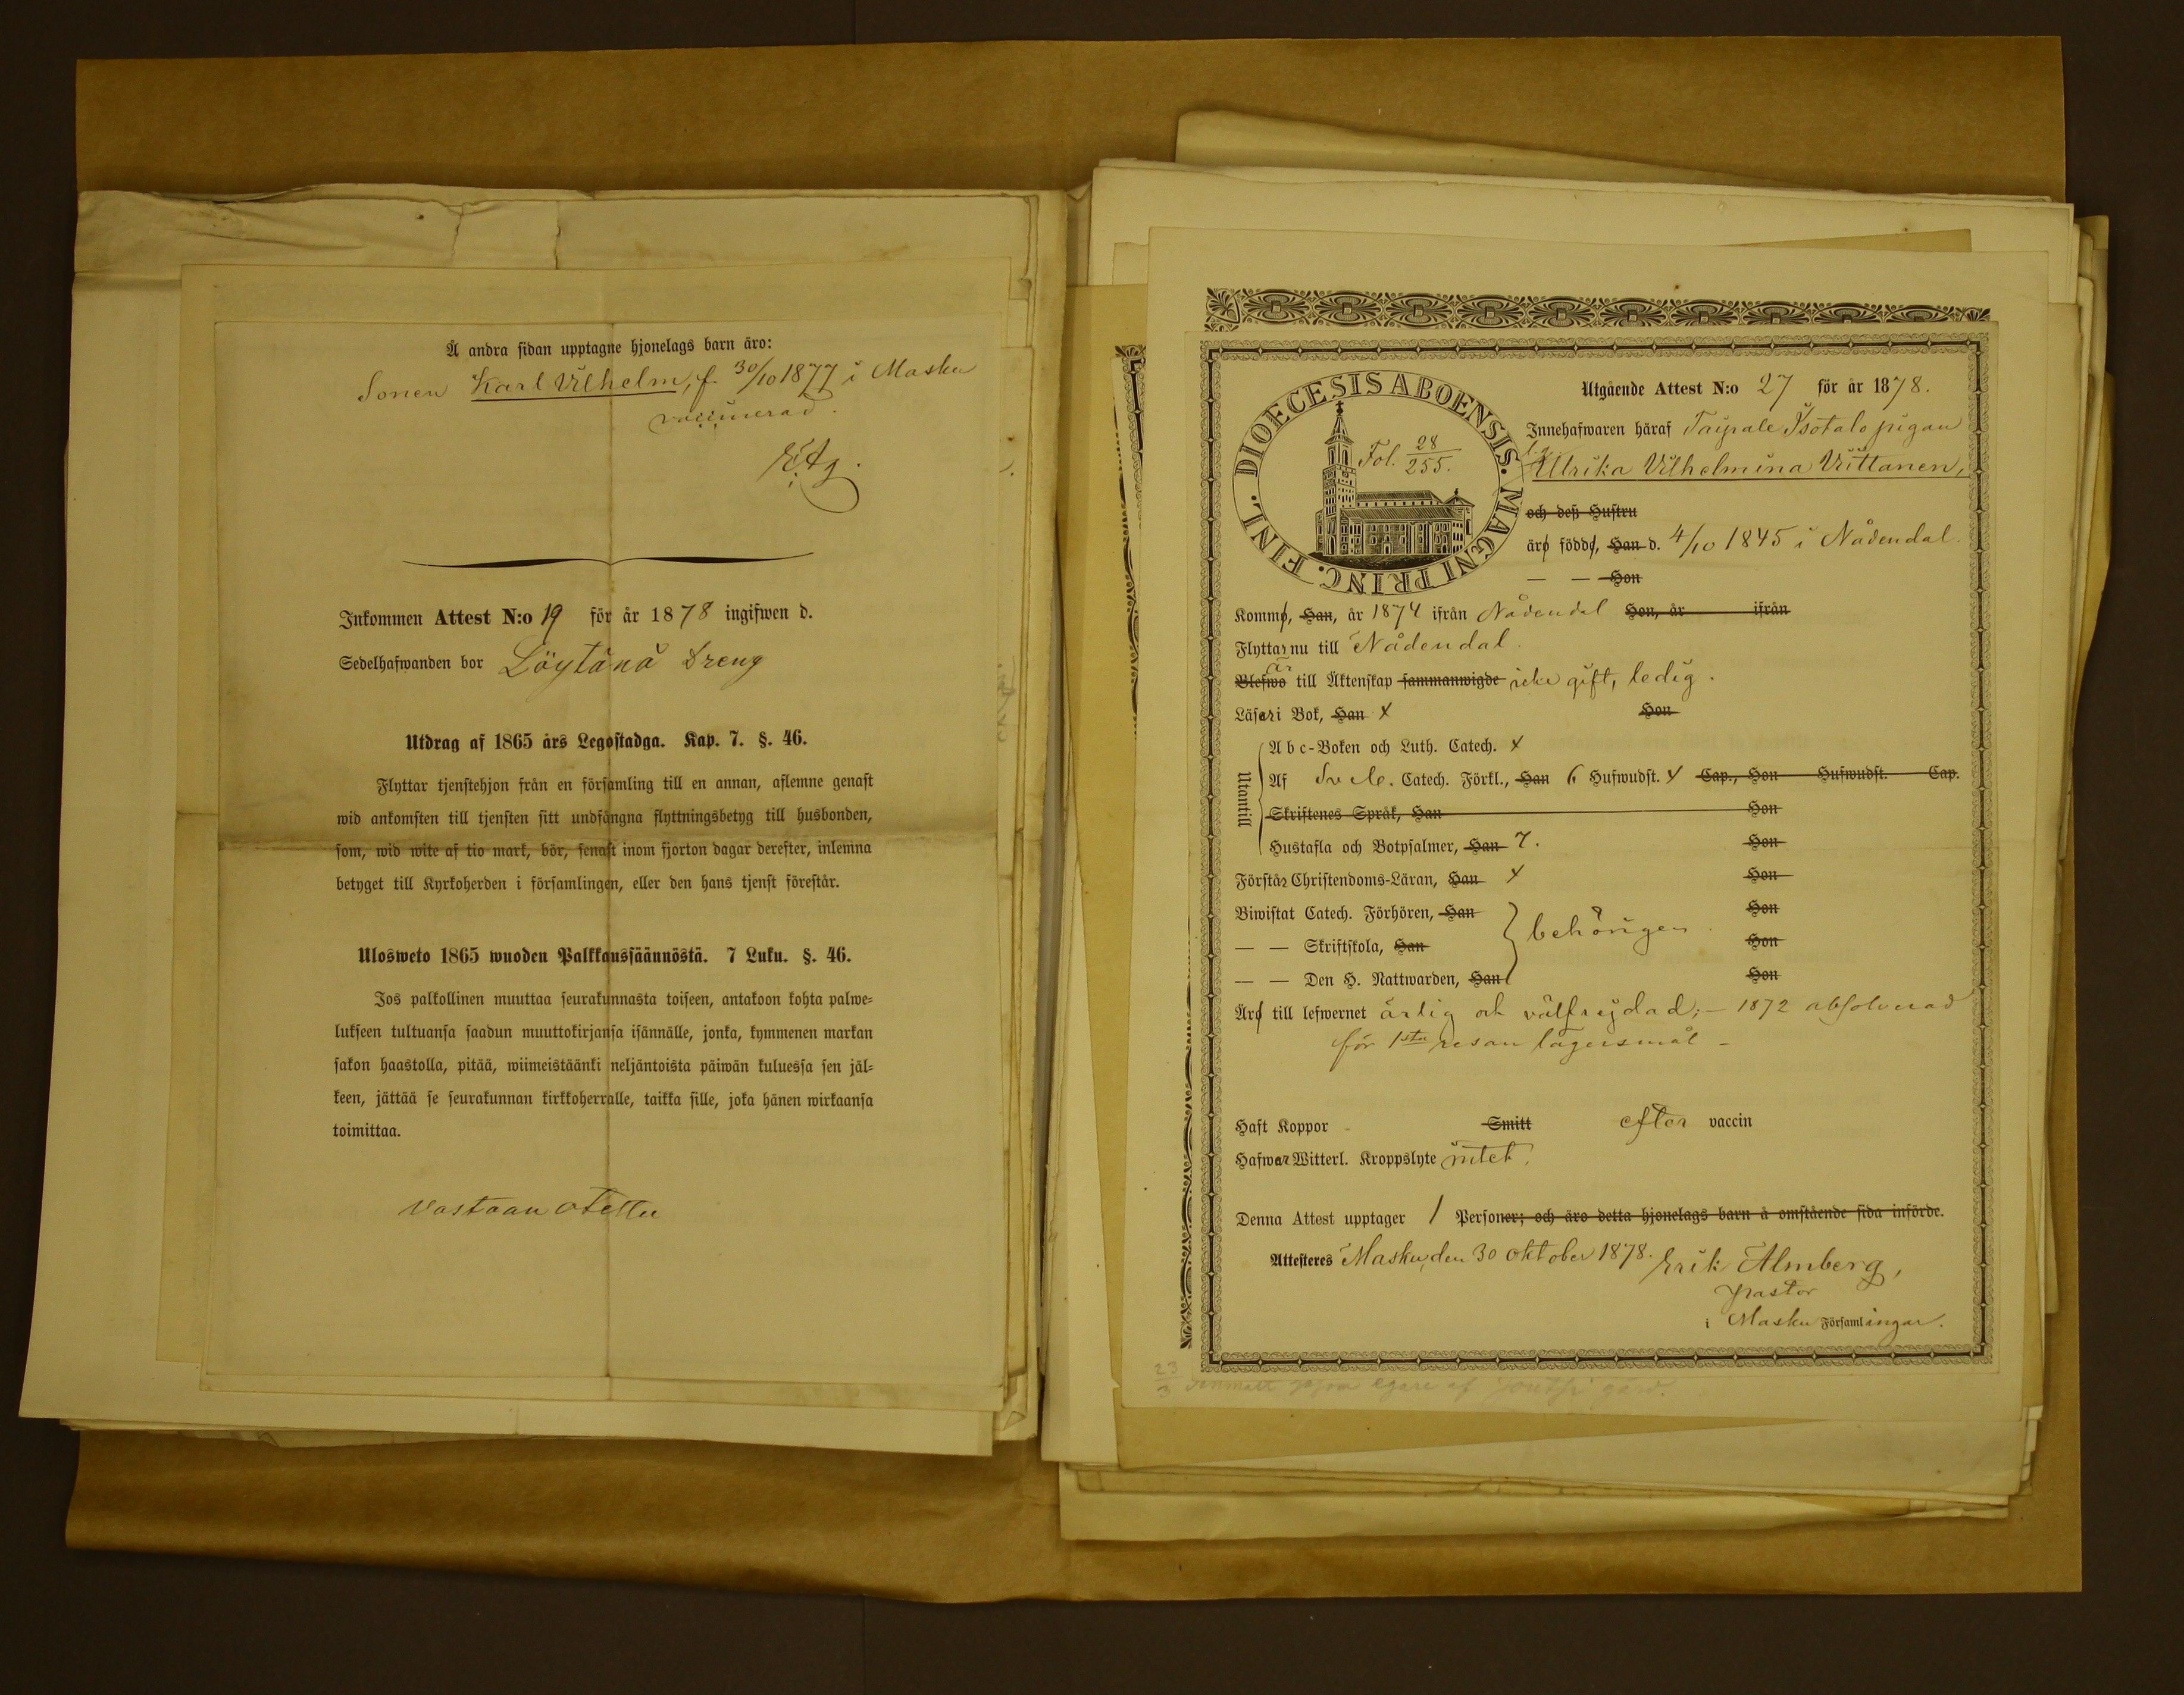 Å andra sidan upptagne hjonelags barn äro:
Sonen Karl Vilhelm, f. 30/10 1877 i Masku
vaccinerad.
EAg.
Inkommen Attest N:o 19 för år 1878 ingifwen d.
Sedelhafwanden bor Löytänä Dreng
Utdrag af 1865 års Legostadga. Kap. 7. §. 46.
Flyttar tjenstehjon från en församling till en annan, aflemne genast
wid ankomsten till tjensten sitt undfångna flyttningsbetyg till husbonden,
som, wid wite af tio mark, bör, senast inom fjorton dagar derefter, inlemna
betyget till Kyrkoherden i församlingen, eller den hans tjenst förestår.
Ulosweto 1865 wuoden Palkkaussäännöstä. 7 Luku. §. 46.
Jos palkollinen muuttaa seurakunnasta toiseen, antakoon kohta palwe=
lukseen tultuansa saadun muuttokirjansa isännälle, jonka, kymmenen markan
sakon haastolla, pitää, wiimeistäänki neljäntoista päiwän kuluessa sen jäl=
keen, jättää se seurakunnan kirkkoherralle, taikka sille, joka hänen wirkaansa
toimittaa.
Vastaan otettu
DIOECESIS ABOENSIS. MAGNI PRINC. FINL.
Fol. 28/255.
Utgående Attest N:o 27 för år 1878.
Innehafwaren häraf Taipale Isotalo pigan
Ulrika Vilhelmina Viittanen,
och deß Hustru
äro födde, Han d. 4/10 1845 i Nådendal.
— — Hon
Komme, Han, år 1874 ifrån Nådendal Hon, år ifrån
Flyttar nu till Nådendal.
är
Blefwo till Äktenskap sammanwigde icke gift, ledig.
Läser i Bok, Han x Hon
Utantill
Abc-Boken och Luth. Catech. x
Af Sv. Catech. Förkl., Han 6 Hufwudst. x Cap., Hon Hufwudst. Cap.
Skriftenes Språk, Han Hon
Hustafla och Botpsalmer, Han 7. Hon
Förstår Christendoms-Läran, Han x Hon
Biwistat Catech. Förhören, Han Hon
— — Skriftskola, Han behörigen. Hon
— — Den H. Nattwarden, Han Hon
Äro till lefwernet ärlig och välfrejdad; — 1872 absolverad
för 1sta resan lägersmål —
Haft Koppor - Smitt efter vaccin
Hafwer Witterl. Kroppslyte intet.
Denna Attest upptager 1 Personer; och äro detta hjonelags barn å omstående sida införde.
Attesteres Masku, den 30 oktober 1878. Erik Almberg,
Pastor
i Masku Församlingar.
23/3